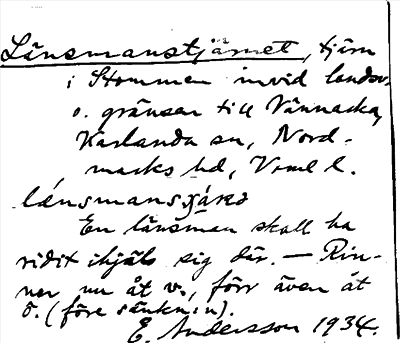 Länsmanstjärnet, tjärn
i Stommen invid landsv.
o. gränsen till Vännacka,
Karlanda sn, Nord-
marks hd, Vrml l.
En länsman skall ha
ridit ihjäls sig där. — Rin-
ner nu åt v., förr även åt
ö. (före sänkn:n).
E. Andersson 1934.